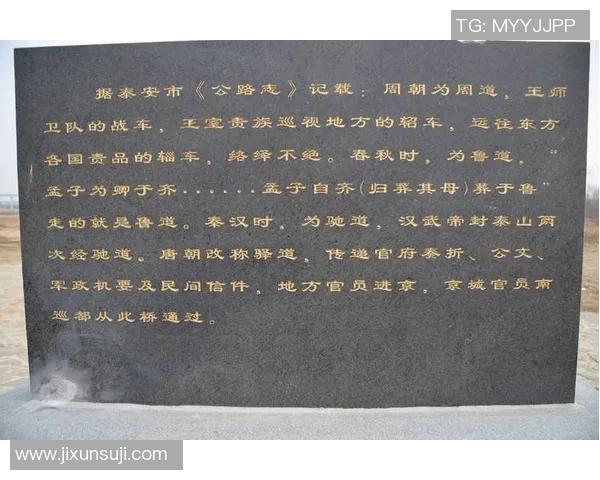 TG: MYYJJPP
据泰安市《公路志》记载：周朝为周道，王师
卫队的战车，王室贵族巡视地方的轺车，运往东方
各国贵品的辎车，络绎不绝。春秋时，为鲁道，“
孟子为卿于齐······孟子自齐(归葬其母)葬于鲁”
走的就是鲁道。秦汉时，为驰道，汉武帝封泰山两
次经驰道。唐朝改称驿道，传递官府奏折、公文、
军政机要及民间信件。地方官员进京，京城官员南
巡都从此桥通过。
www.jixunsuji.com